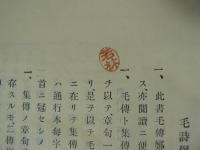 毛詩
一、此書毛傳鄭
ス、亦閲讀ニ便
一、毛傳ト集傳
ヲ以テ章句ニ
リ、是ヲ以テ毛
ニ在リテ集傳
ハ通行本每字
首ニ冠セシメ
一、集傳ノ章句
存スルモ、二傳